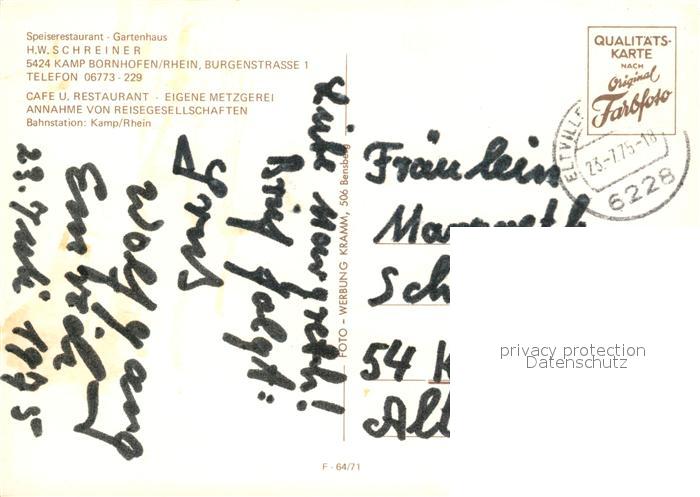 Speiserestaurant - Gartenhaus
H.W. SCHREINER
5424 KAMP BORNHOFEN/RHEIN, BURGENSTRASSE 1
TELEFON 06773 - 229
CAFE U. RESTAURANT - EIGENE METZGEREI
ANNAHME VON REISEGESELLSCHAFTEN
Bahnstation: Kamp/Rhein
Liebe Margreth!
Brief folgt!
Wolfgang
23. Juli 1975
FOTO - WERBUNG KRAMM, 506 Bensberg
F - 64/71
QUALITÄTS-
KARTE
NACH
Original
Farbfoto
ELTVILLE
23.-7.75-18
6228
Fräulein
Margreth
Sch
54 K
Alt
privacy protection
Datenschutz